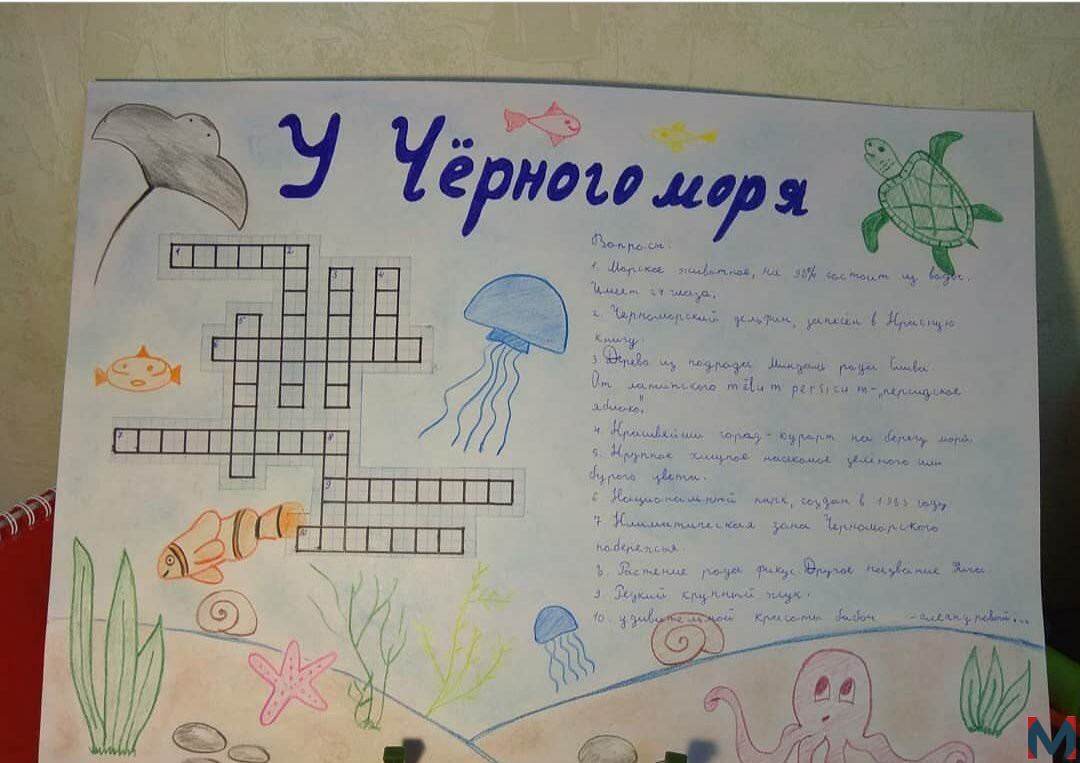 У Чёрного моря
Вопросы:
1. Морское животное, на 98% состоит из воды.
Имеет 24 глаза.
2. Черноморский дельфин, занесён в Красную
книгу.
3. Дерево из подрода Миндаль рода Слива
От латинского mēlum persicum-„персидское
яблоко".
4. Красивейший город-курорт на берегу моря.
5. Крупное хищное насекомое зелёного или
бурого цвета.
6 Национальный парк, создан в 1983 году
7. Климатическая зона Черноморского
побережья.
8. Растение рода фикус. Другое название
9. Редкий крупный жук.
10. удивительной красоты бабоч
1
2
3
4
5
6
7
8
9
10
М